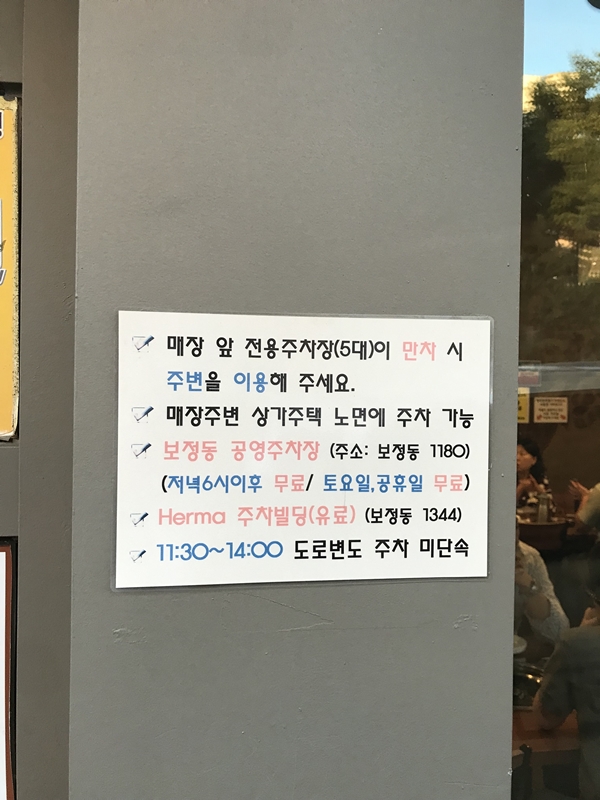 매장 앞 전용주차장(5대)이 만차 시
주변을 이용해 주세요.
매장주변 상가주택 노면에 주차 가능
보정동 공영주차장 (주소: 보정동 1180)
(저녁6시이후 무료/ 토요일,공휴일 무료)
Herma 주차빌딩(유료) (보정동 1344)
11:30~14:00 도로변도 주차 미단속